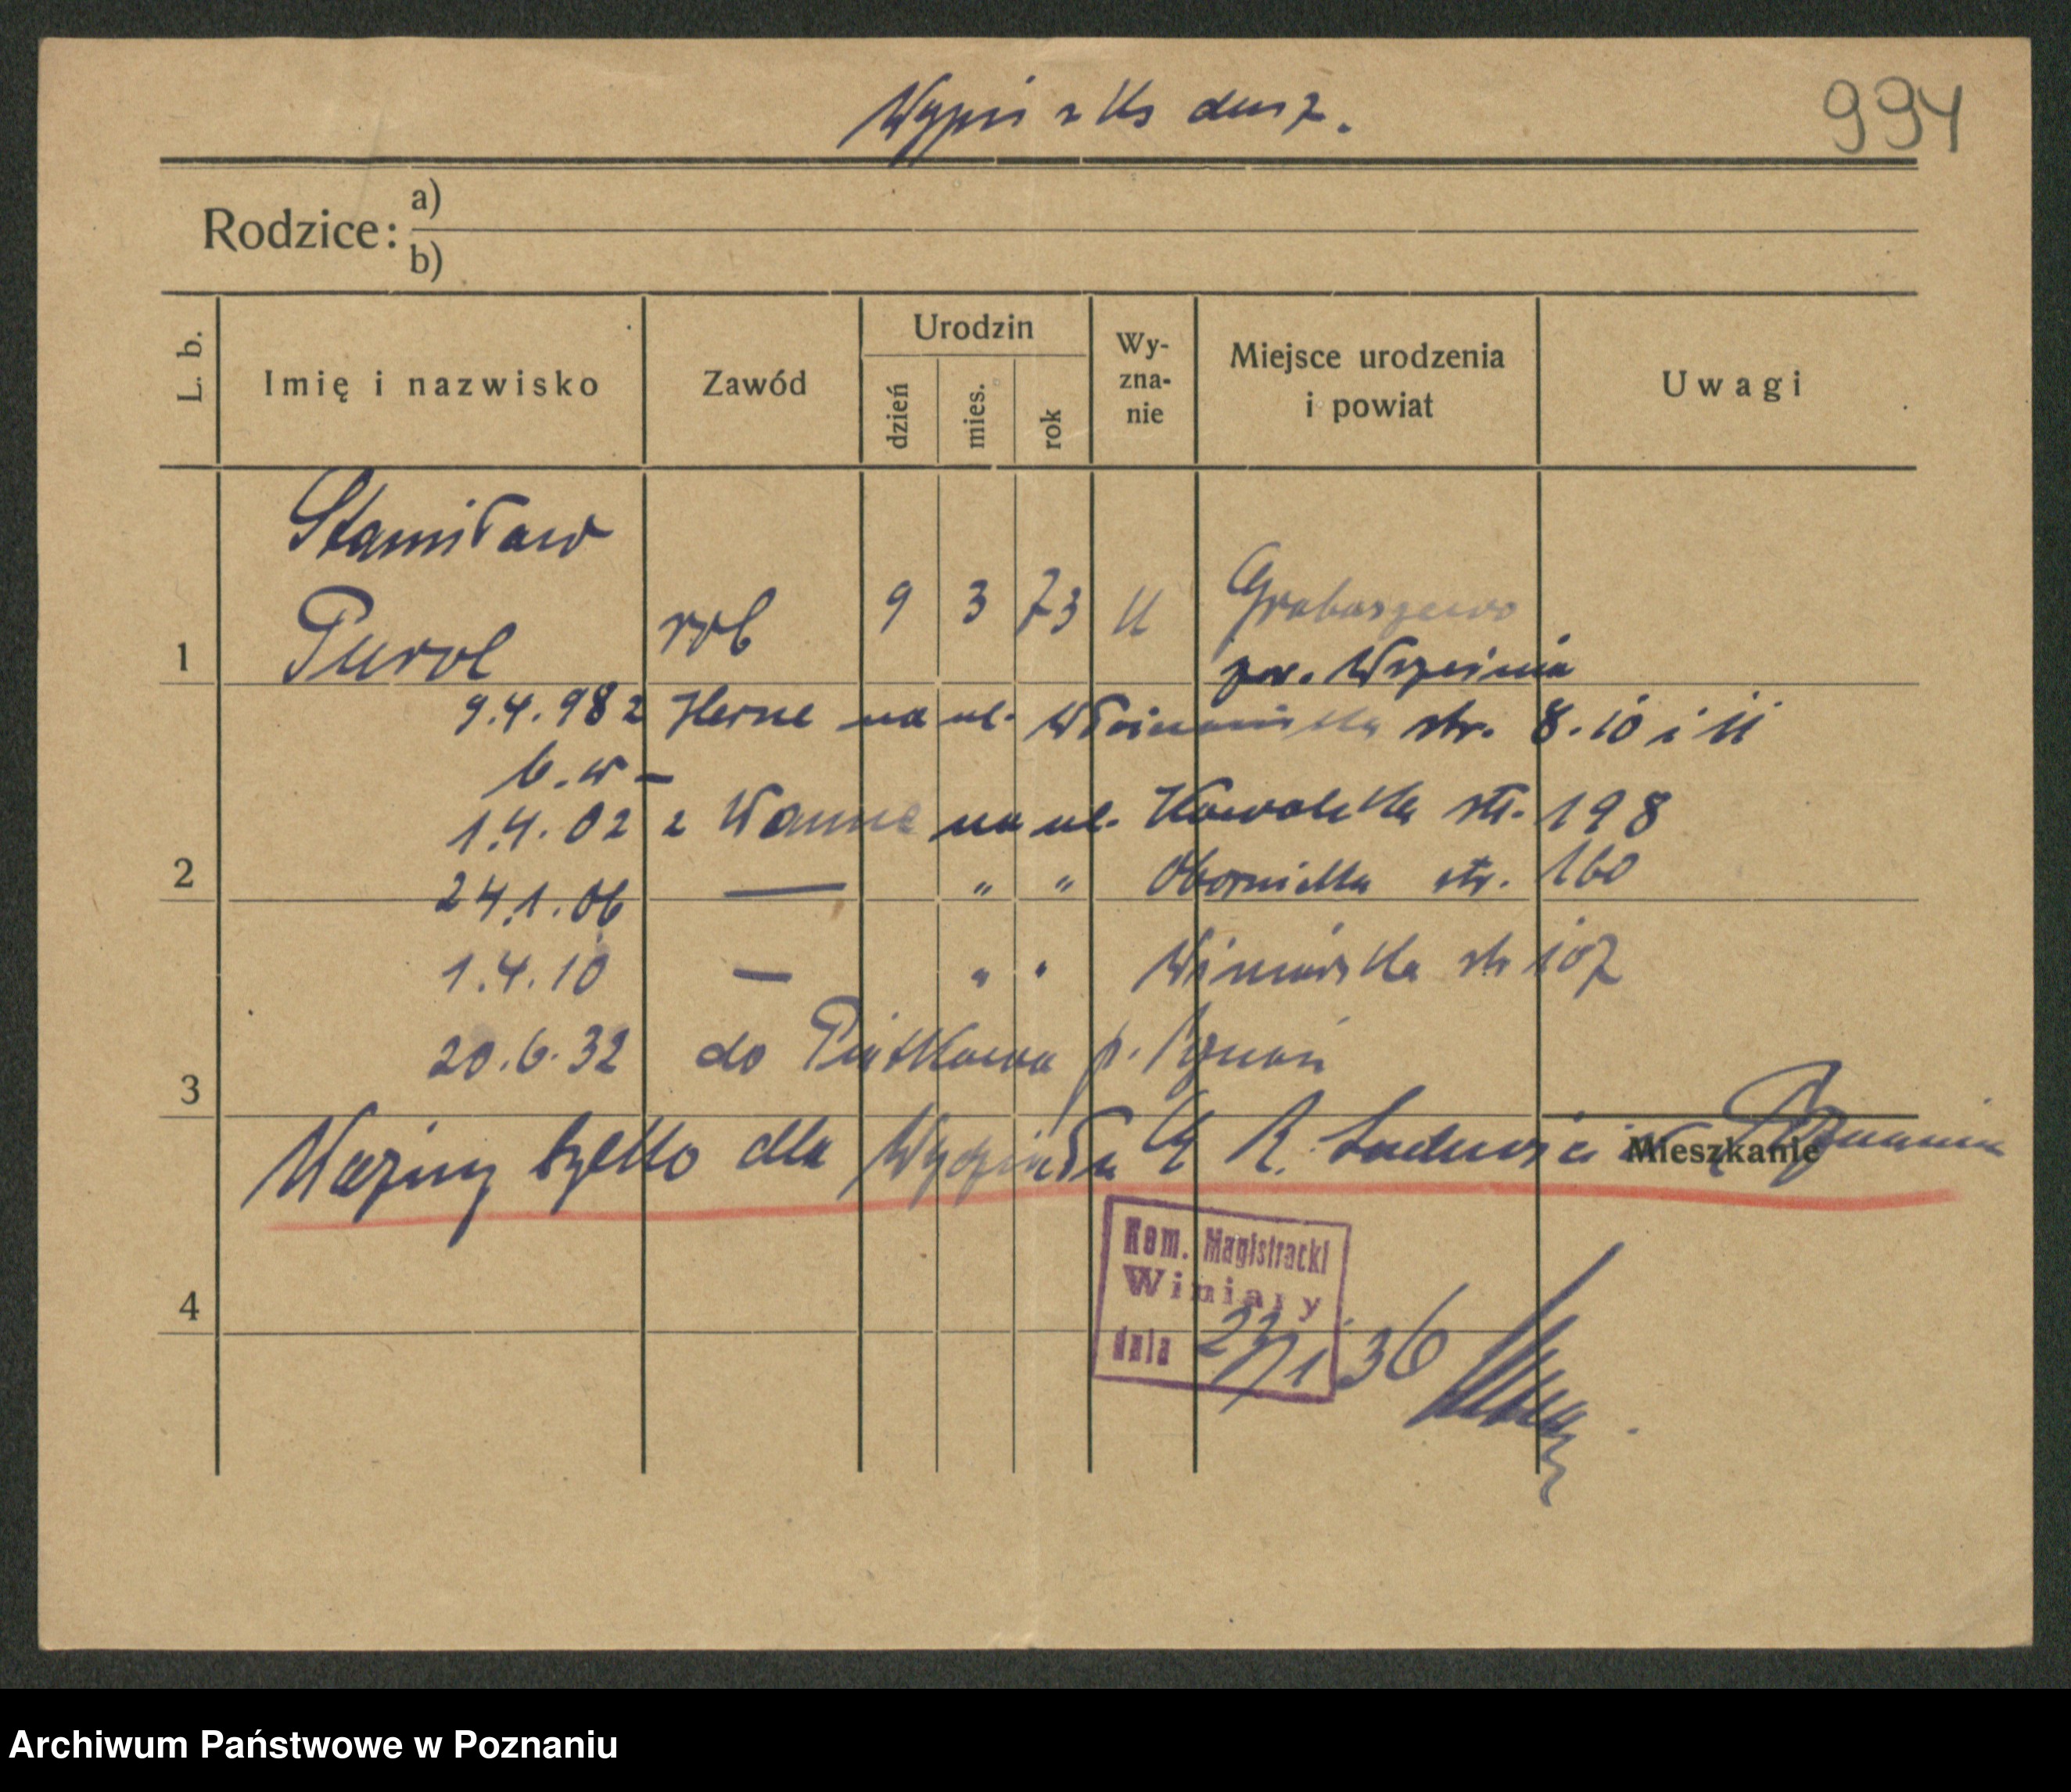 Wypis z Ks dusz.
994
Rodzice:
a)
b)
L. b.
Imię i nazwisko
Zawód
Urodzin
dzień
mies.
rok
Wy-
zna-
nie
Miejsce urodzenia
i powiat
Uwagi
Stanisław
1 Purol rob 9 3 73 K Graboszewo
pow. Września
9.4.98 z Herne na ul. str. 8. 10 i 11
b. w —
1.4.02 z Wanne na ul. Kowalska str. 198
2
24.1.06 — " " Obornicka str. 160
1.4.10 — " " Winiarska str 107
20.6.32 do Piątkowa p. Poznań
3
Ważny tylko dla Wydziału E. R. Ludności w Poznaniu
Mieszkanie
Kom. Magistracki
Winiary
dnia 23/1.36
4
Archiwum Państwowe w Poznaniu